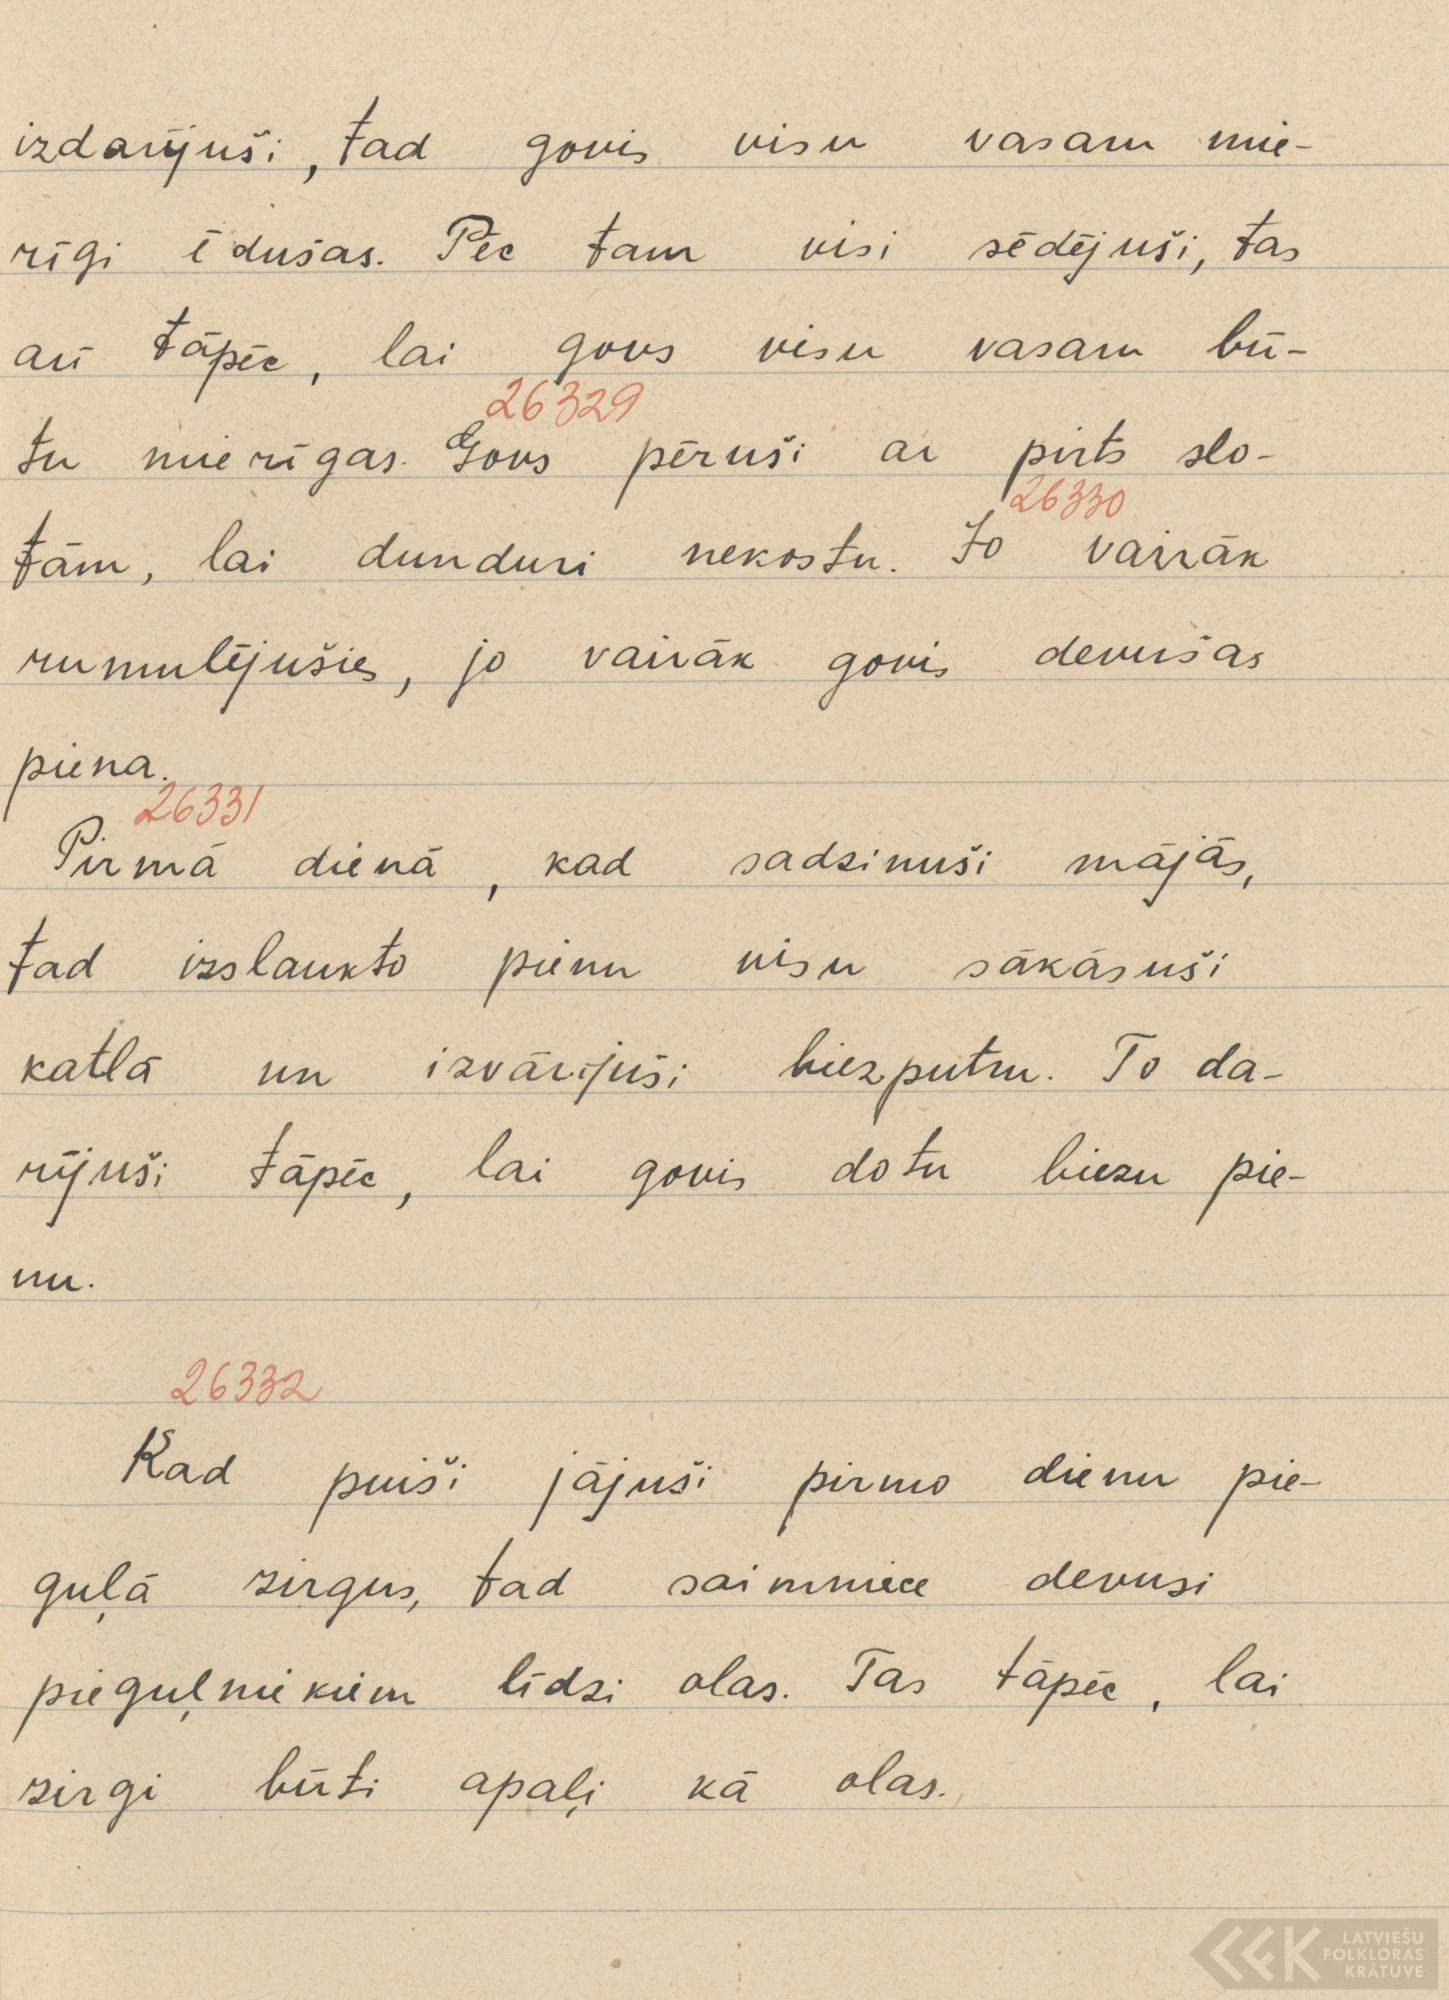 izdarījuši, tad govis visu vasaru mie-
rīgi ēdušas. Pēc tam visi sēdējuši, tas
arī tāpēc, lai govs visu vasaru bū-
26329
tu mierīgas. Govs pēruši ar pirts slo-
26330
tām, lai dunduri nekostu. Jo vairāk
rumulējušies, jo vairāk govis devušas
piena.
26331
Pirmā dienā, kad sadzinuši mājās,
tad izslaukto pienu visu sākāsuši
katlā un izvārījuši biezputru. To da-
rījuši tāpēc, lai govis dotu biezu pie-
nu.
26332
Kad puiši jājuši pirmo dienu pie-
guļā zirgus, tad saimniece devusi
pieguļniekiem līdzi olas. Tas tāpēc, lai
zirgi būti apaļi kā olas.
LATVIEŠU
FOLKLORAS
KRĀTUVE